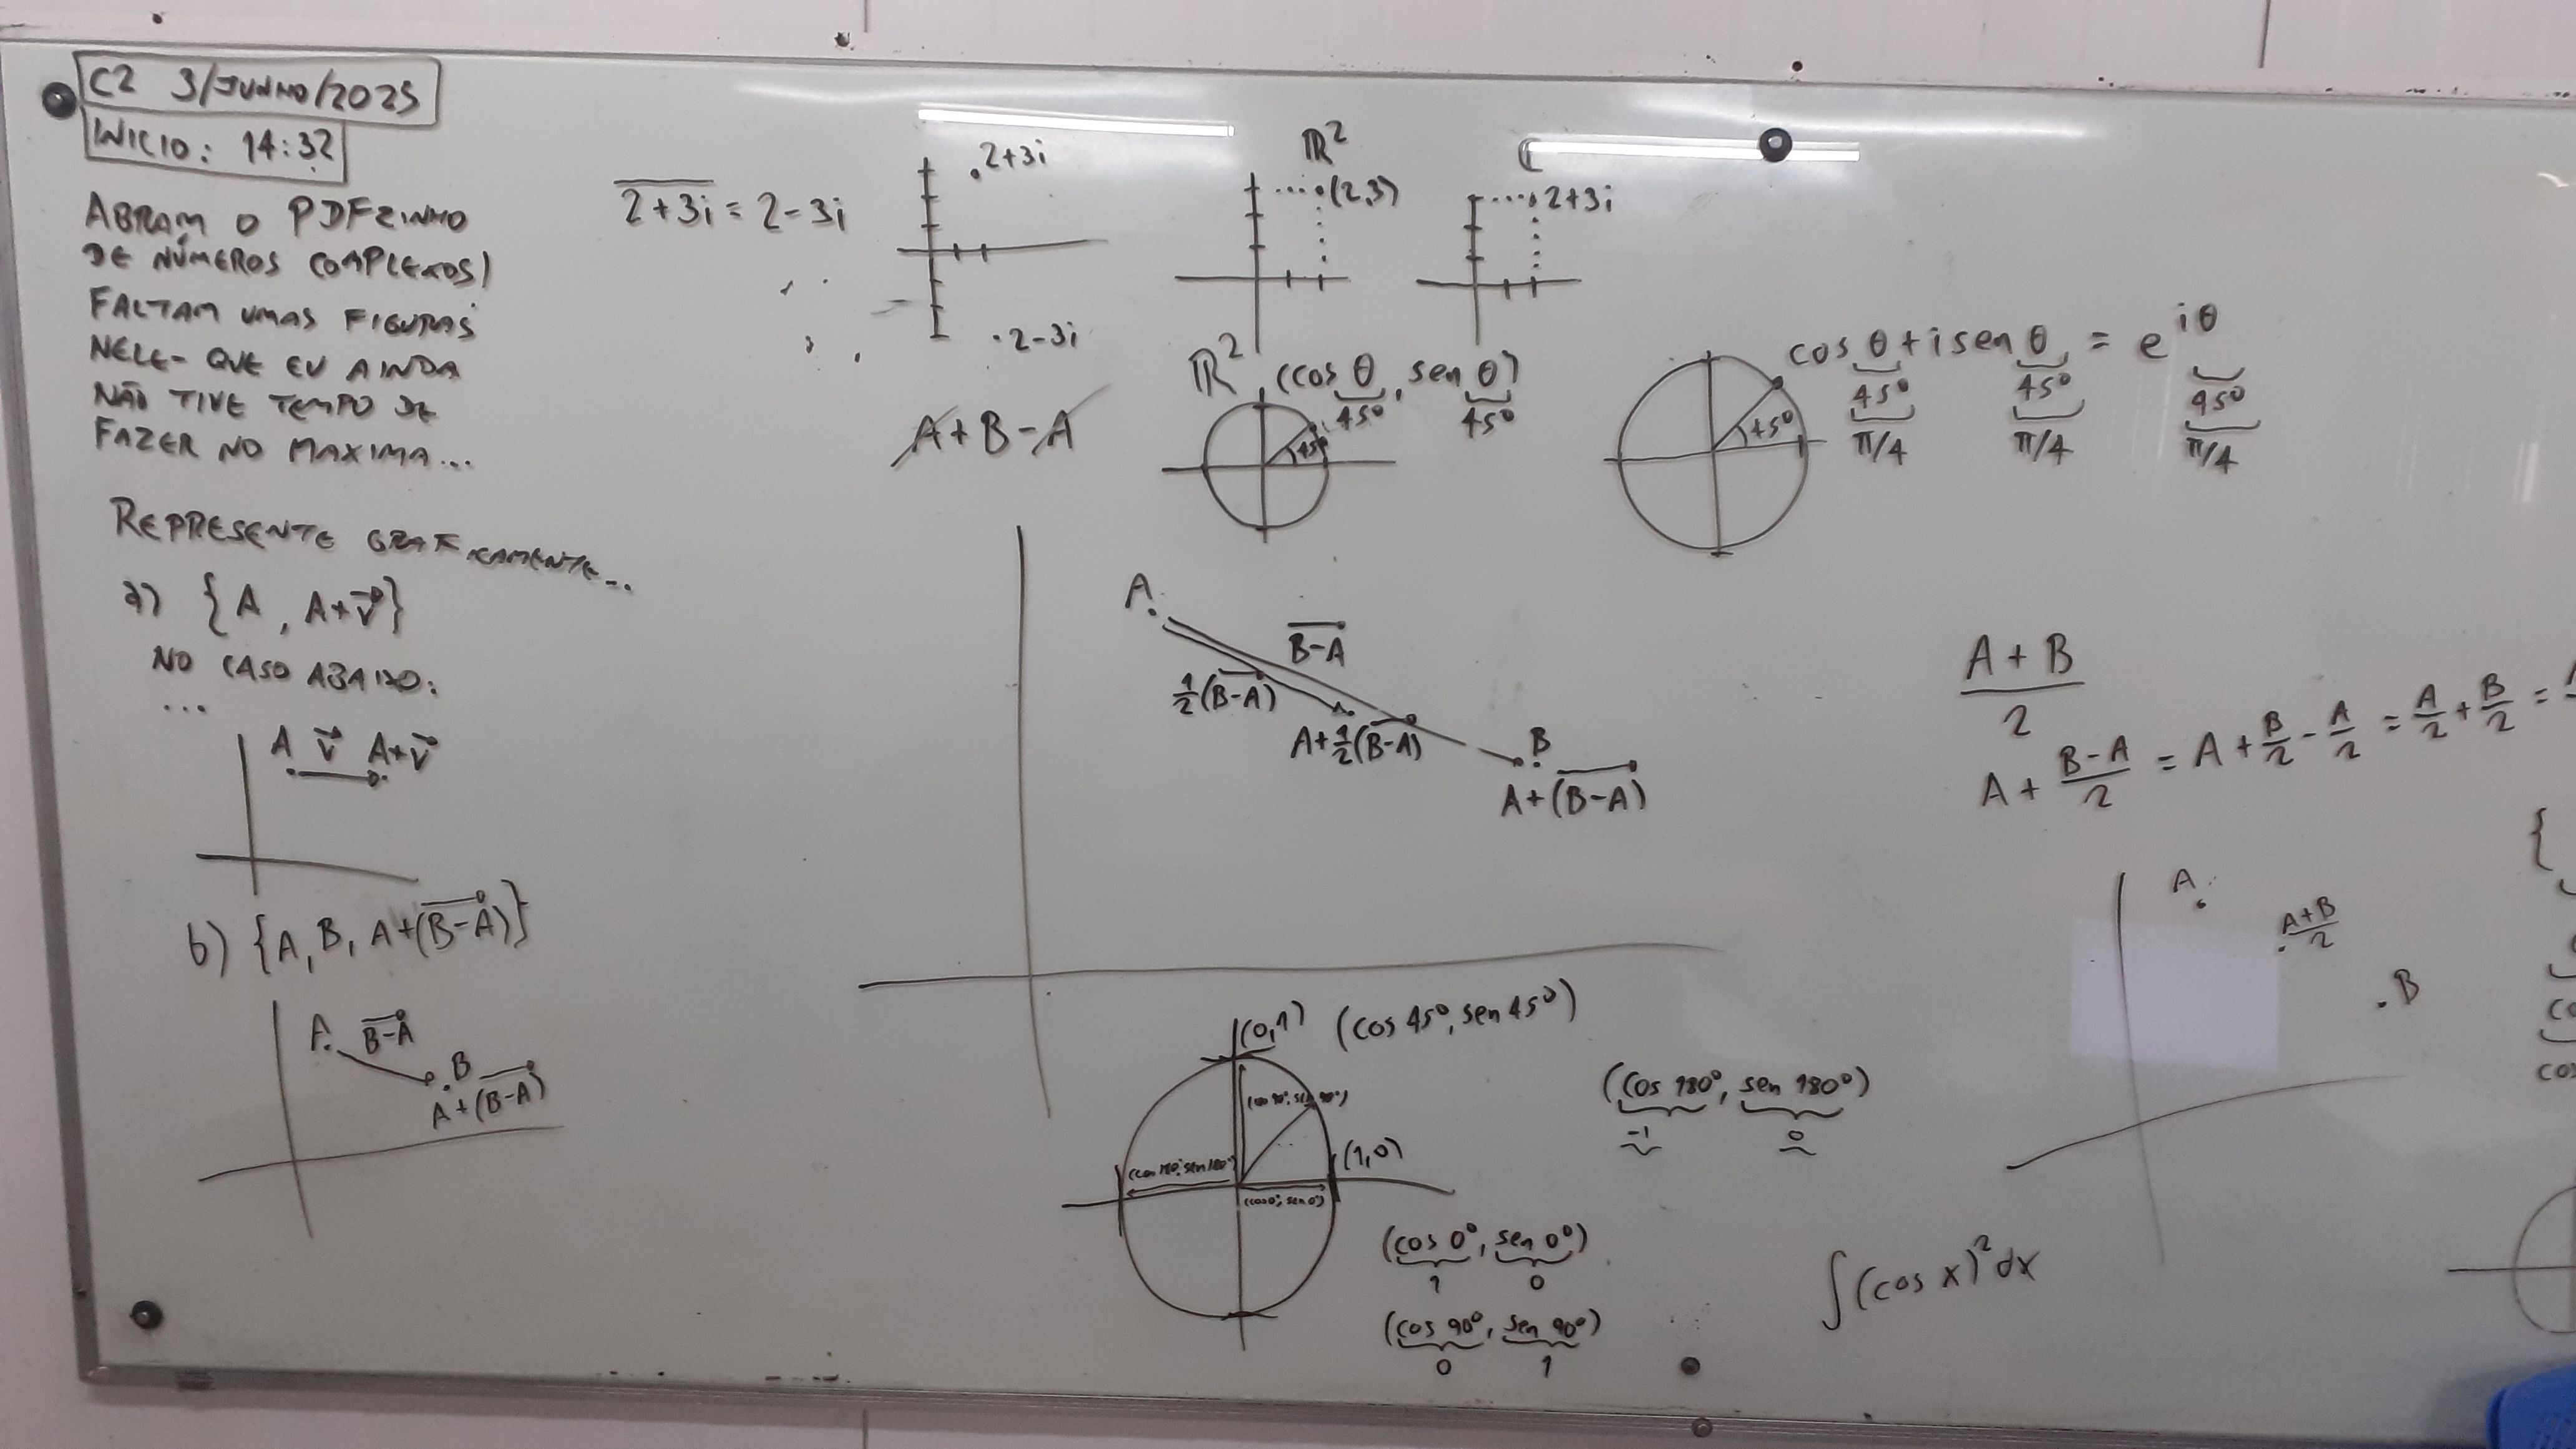 C2 3/JUNHO/2025
INICIO: 14:32
ABRAM O PDFZINHO
DE NÚMEROS COMPLEXOS!
FALTAM UMAS FIGURAS
NELE - QUE EU AINDA
NÃO TIVE TEMPO DE
FAZER NO MAXIMA...
REPRESENTE GRAFICAMENTE...
a) {A, A+v⃗}
NO CASO ABAIXO:
...
A v⃗ A+v⃗
b) {A, B, A+(B-A)}
A B-A
B
A+(B-A)
2+3i = 2-3i
2+3i
2-3i
ℝ²
(2,3)
ℂ
2+3i
A+B-A
ℝ² (cos θ, sen θ)
45° 45°
45°
cos θ + i sen θ = e^{iθ}
45° 45° 45°
π/4 π/4 π/4
45°
A
B-A
½(B-A)
A+½(B-A)
B
A+(B-A)
A+B
2
A + (B-A)/2 = A + B/2 - A/2 = A/2 + B/2 =
A
A+B
2
B
(0,1) (cos 45°, sen 45°)
(cos 90°, sen 90°)
(cos 180°, sen 180°)
(1,0)
(cos 0°, sen 0°)
(cos 180°, sen 180°)
-1 0
(cos 0°, sen 0°)
1 0
(cos 90°, sen 90°)
0 1
∫(cos x)² dx
{